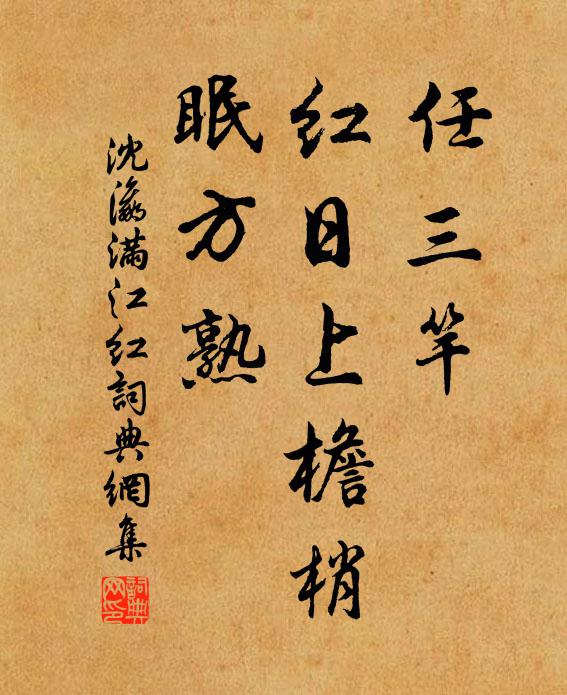 任三竿
红日上檐梢
眠方熟
沈瀛满江红词典網集
詞典网印